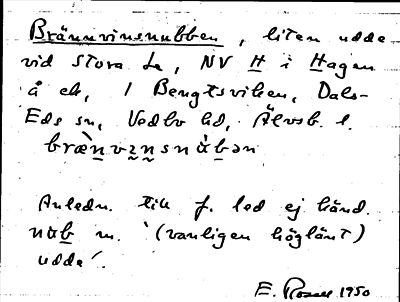 Brännvinsnubben, liten udde
vid Stora Le, NV H i Hagen
å ek, i Bengtsviken, Dals-
Eds sn, Vedbo hd, Älvsb. l.
bræ̀n̲vɪn̲sn ȧb̲ən
Anledn. till f. led ej känd.
nub̲ m. '(vanligen höglänt)
udde'.
E. 1950